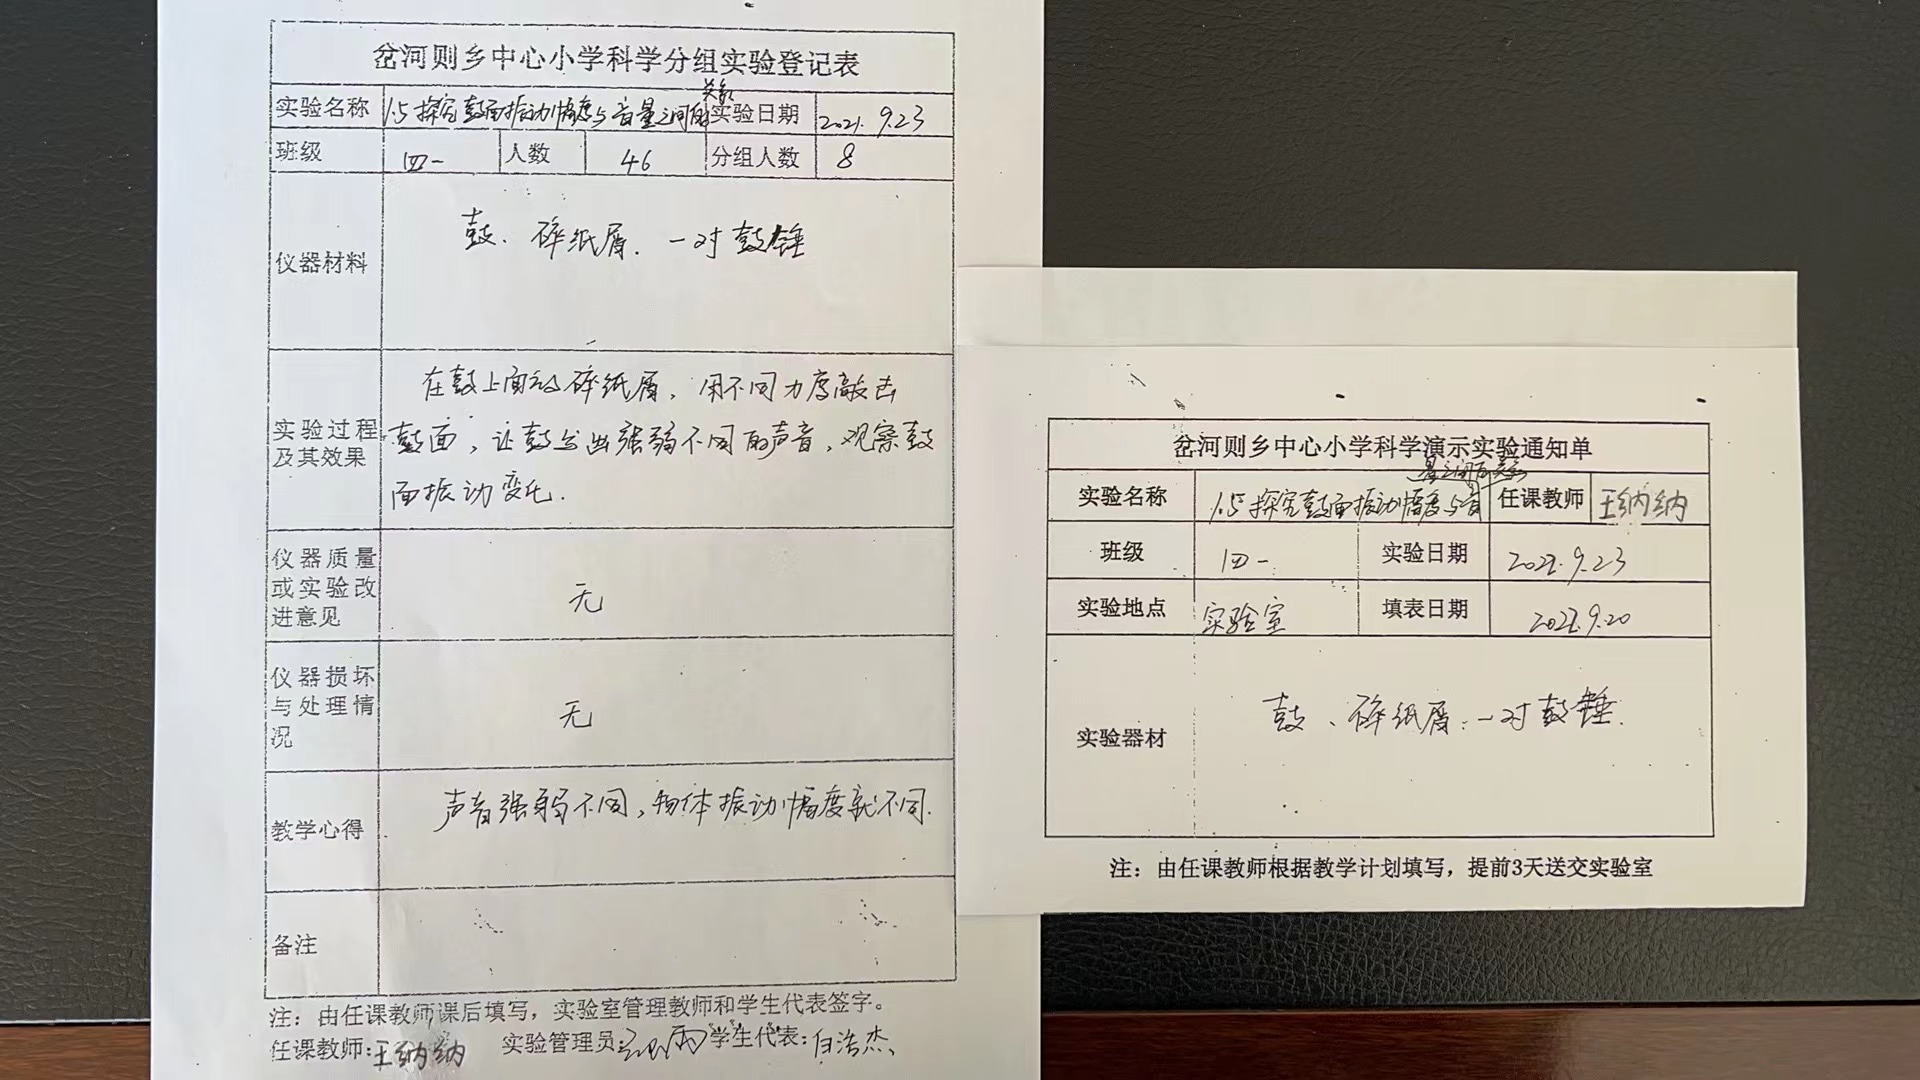 岔河则乡中心小学科学分组实验登记表
实验名称 1.5探究鼓面振动幅度与音量之间的关系 实验日期 2021.9.23
班级 四一 人数 46 分组人数 8
仪器材料 鼓、碎纸屑、一对鼓锤
实验过程及其效果
在鼓上面放碎纸屑，用不同力度敲击
鼓面，让鼓发出强弱不同的声音，观察鼓
面振动变化.
仪器质量或实验改进意见 无
仪器损坏与处理情况 无
教学心得 声音强弱不同，物体振动幅度就不同.
备注
注：由任课教师课后填写，实验室管理教师和学生代表签字。
任课教师：王纳纳 实验管理员： 学生代表：白浩杰
岔河则乡中心小学科学演示实验通知单
实验名称 1.5探究鼓面振动幅度与音量之间的关系 任课教师 王纳纳
班级 四一 实验日期 2021.9.23
实验地点 实验室 填表日期 2021.9.20
实验器材 鼓、碎纸屑、一对鼓锤.
注：由任课教师根据教学计划填写，提前3天送交实验室